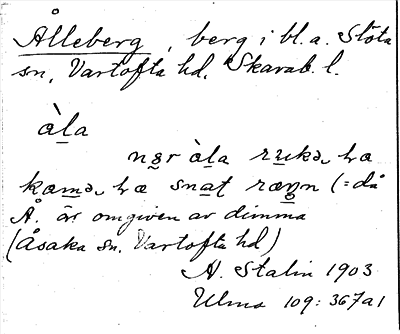 Ålleberg, berg i bl.a. Slöta
sn, Vartofta hd, Skarab. l.
àla
nær àla rukə, hæ
kæmə, hæ snat ræŋn (= då
Å. är omgiven av dimma
(Åsaka sn. Vartofta hd)
A. Stalin 1903
Ulma 109:367a1